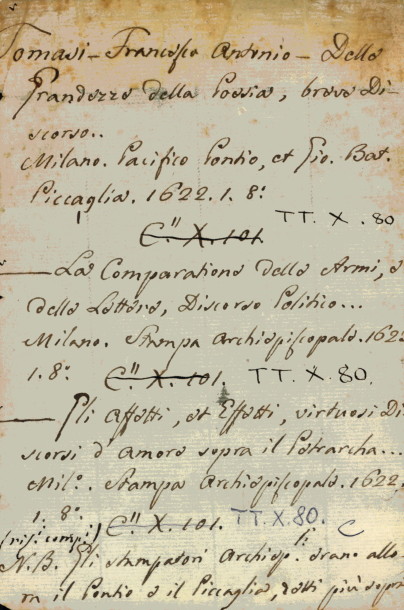 Tomasi - Francesco Antonio - Della
Grandezza della Poesia, breve Di-
scorso..
Milano. Pacifico Pontio, et Gio. Bat.
Piccaglia. 1622. 1. 8.º
C." X. 101. TT. X. 80
La Comparatione delle Armi, e
delle Lettere, Discorso Politico...
Milano. Stampa Archiepiscopale. 1622
1. 8.º C." X. 101. TT. X. 80.
Gli Affetti, et Effetti, virtuosi Di
scorsi d'Amore sopra il Petrarcha...
Mil.º. Stampa Archiepiscopale. 1622.
1. 8.º C." X. 101. TT. X. 80. C
N.B. Gli stampatori Archiep.li erano allo-
ra il Pontio e il Piccaglia, detti più sopra